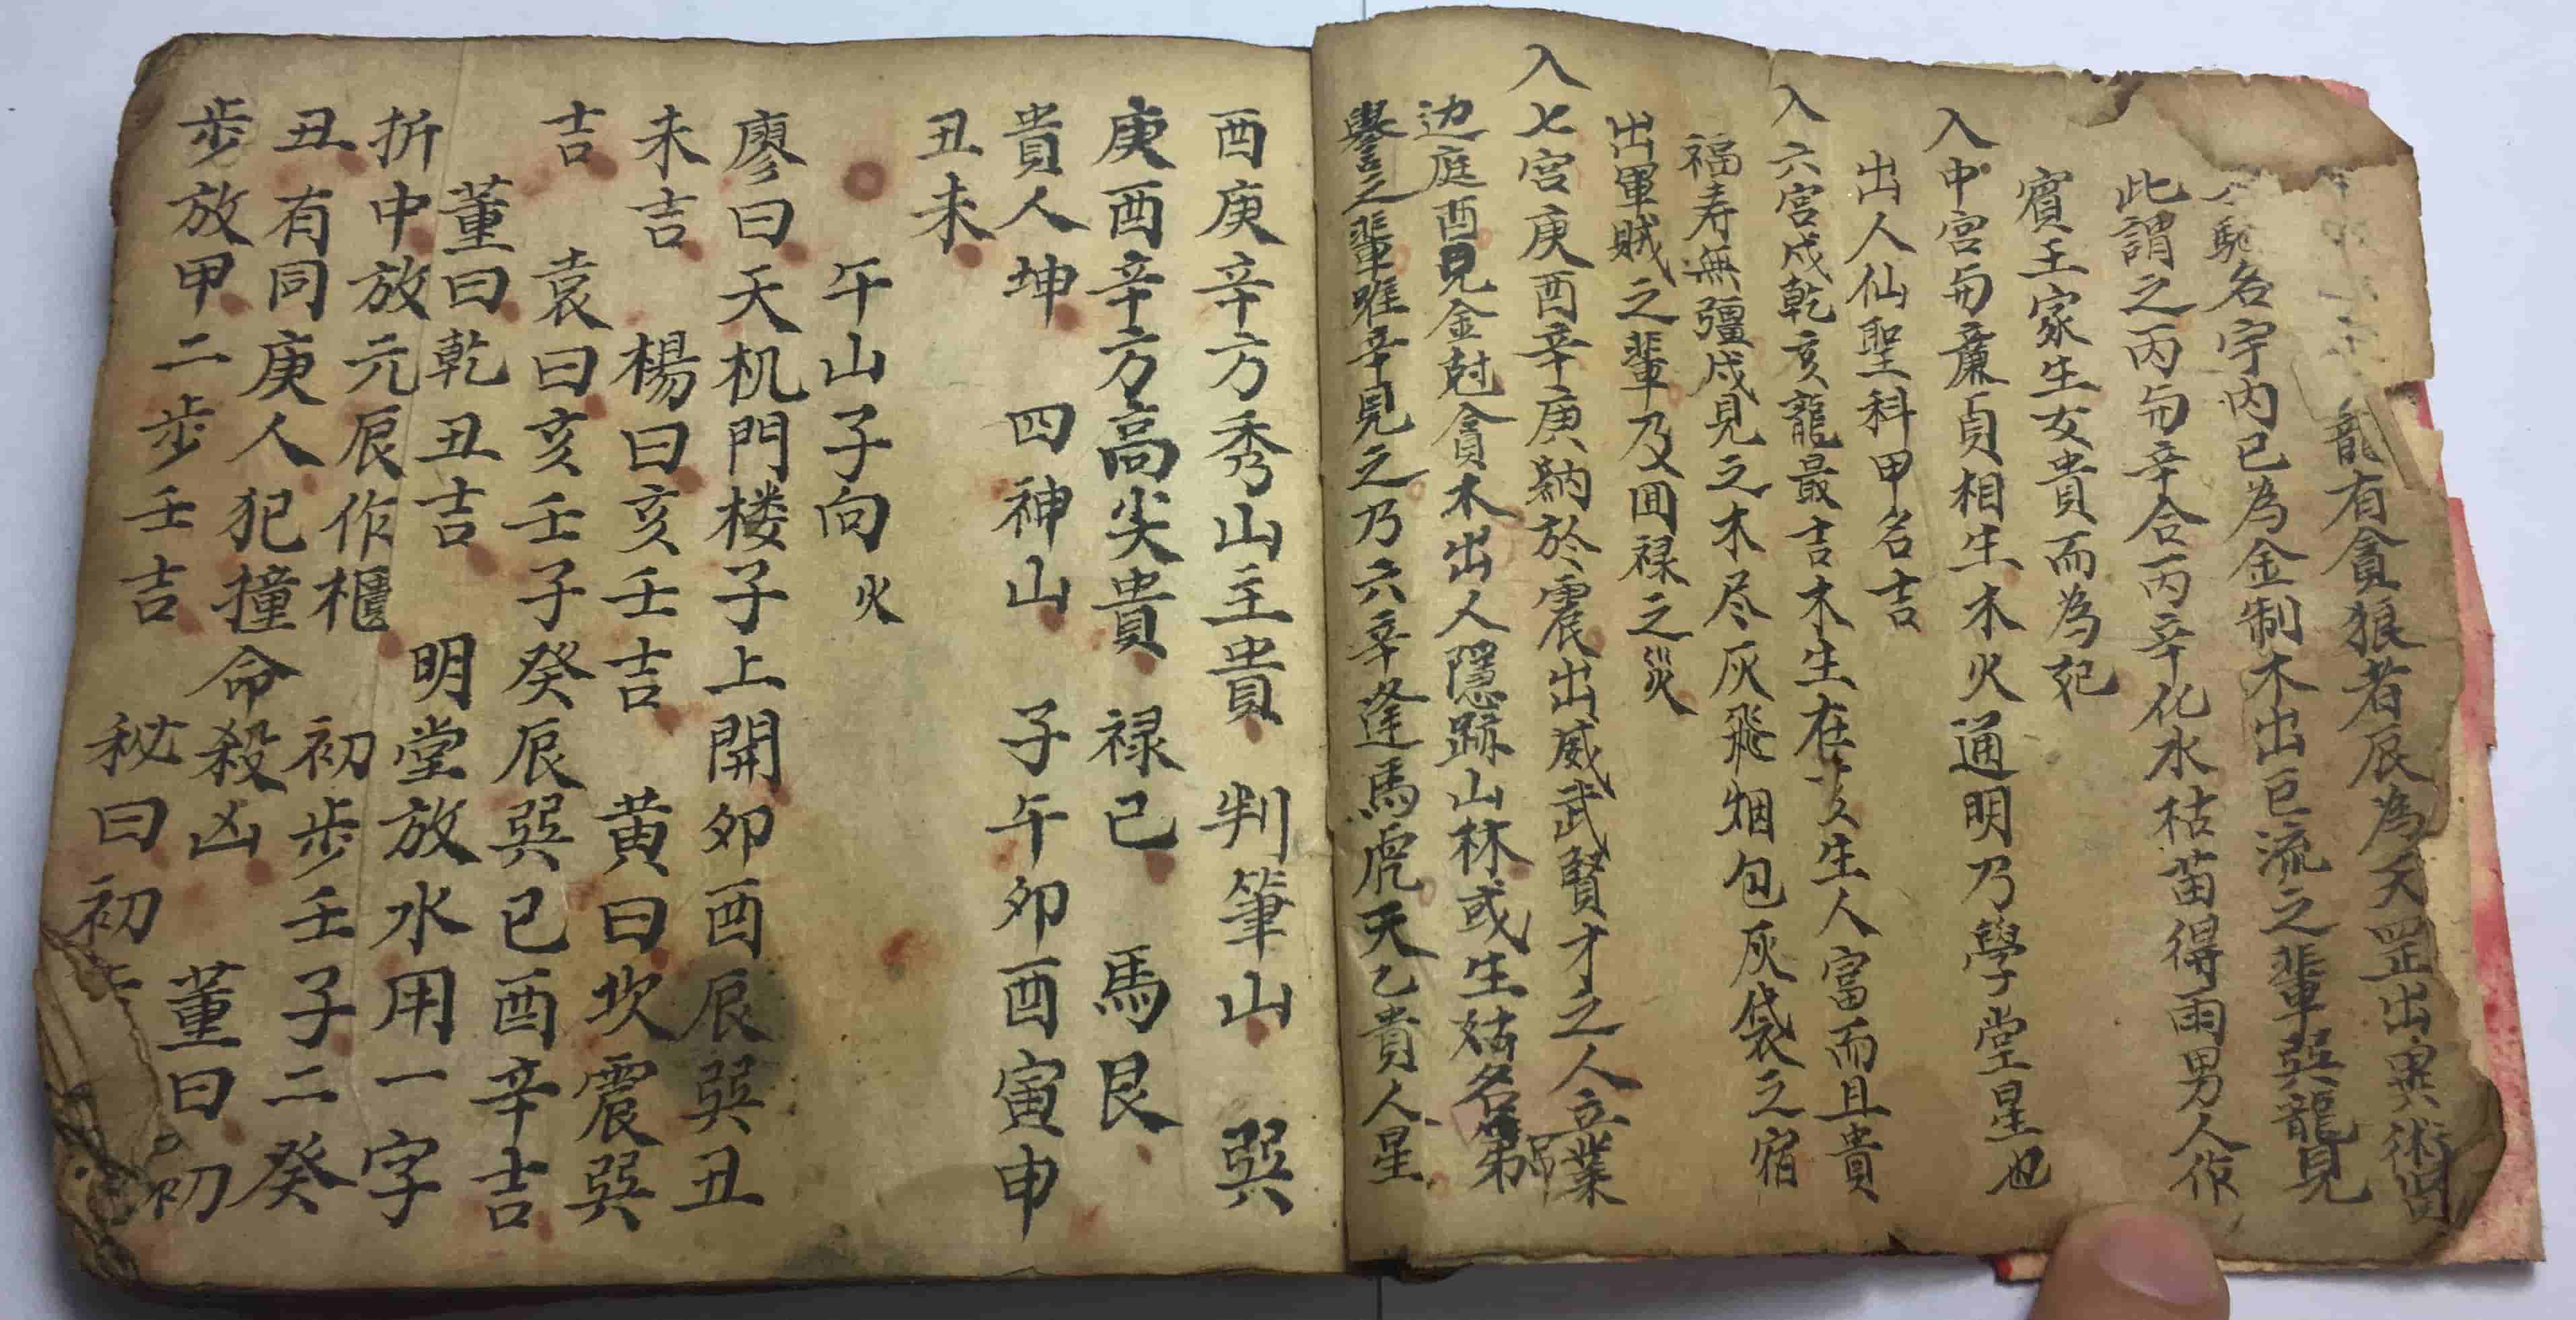 龍有貪狼者辰為天罡出異術
馳名宇內已為金制木出巨流之輩巽龍見
此謂之丙與辛合丙辛化水枯苗得雨男人作
賓王家生女貴而為妃
入中宮與廉貞相生木火通明乃學堂星也
出人仙聖科甲名吉
入六宮戍乾亥龍最吉木生在亥生人富而且貴
福寿無彊戍見之木尽灰飛烟包灰袋之宿
出軍賊之輩及囬禄之災
入七宮庚酉辛庚納於震出威武賢才之人立業
边庭酉見金尅貪木出人隱跡山林或生姑名第
譽之輩唯辛見之乃六辛逢馬虎天乙貴人星
酉庚辛方秀山主貴 判筆山 巽
庚酉辛方高尖貴 禄已 馬艮
貴人坤 四神山 子午卯酉寅申
丑未
午山子向 火
廖曰天机門楼子上開卯酉辰巽丑
未吉 楊曰亥壬吉 黄曰坎震巽
吉 袁曰亥壬子癸辰巽已酉辛吉
董曰乾丑吉 明堂放水用一字
折中放元辰作櫃 初步壬子二癸
丑有同庚人犯撞命殺凶 董曰初
步放甲二步壬吉 秘曰初